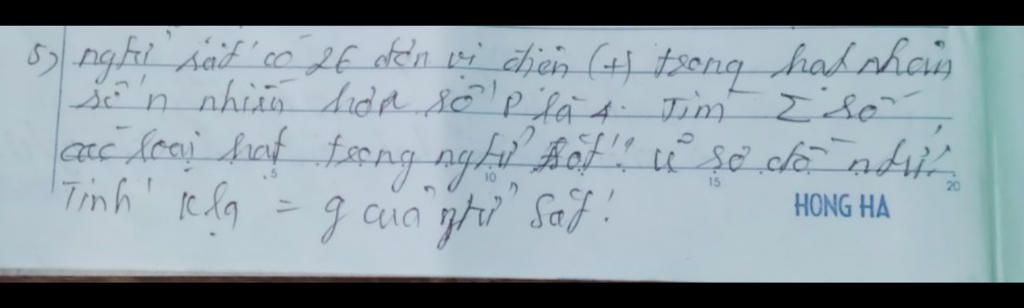 5) ngtử sắt có 26 đơn vị điện (+) trong hạt nhân
số n nhiều hơn số P là 4. Tìm Σ số
các loại hạt trong ngtử sắt! sơ đồ
Tính klg = g của ngtử Sắt!
5 10 15 20
HONG HA